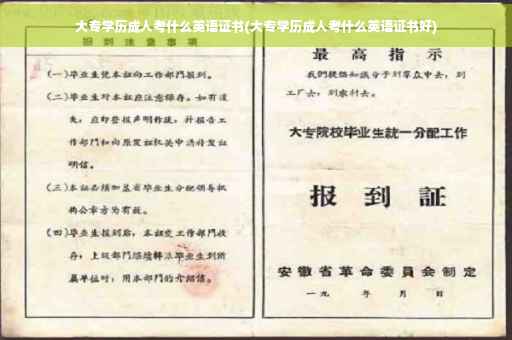 大专学历成人考什么英语证书(大专学历成人考什么英语证书好)
报到注意事项
(一)毕业生凭本证向工作部门报到。
(二)毕业生对本证应注意保存。如有遗
失，应即登报声明作废，并报告工
作部门和向原发证机关申请补发证
明信。
(三)本证必须加盖省毕业生分配领导机
构公章方为有效。
(四)毕业生报到后，本证交工作部门收
存；上级部门继续转派毕业生到所
属单位时，用本部门的介绍信。
最高指示
我们提倡知识分子到群众中去，到
工厂去，到农村去。
大专院校毕业生统一分配工作
报到証
安徽省革命委員会制定
一九 年 月 日